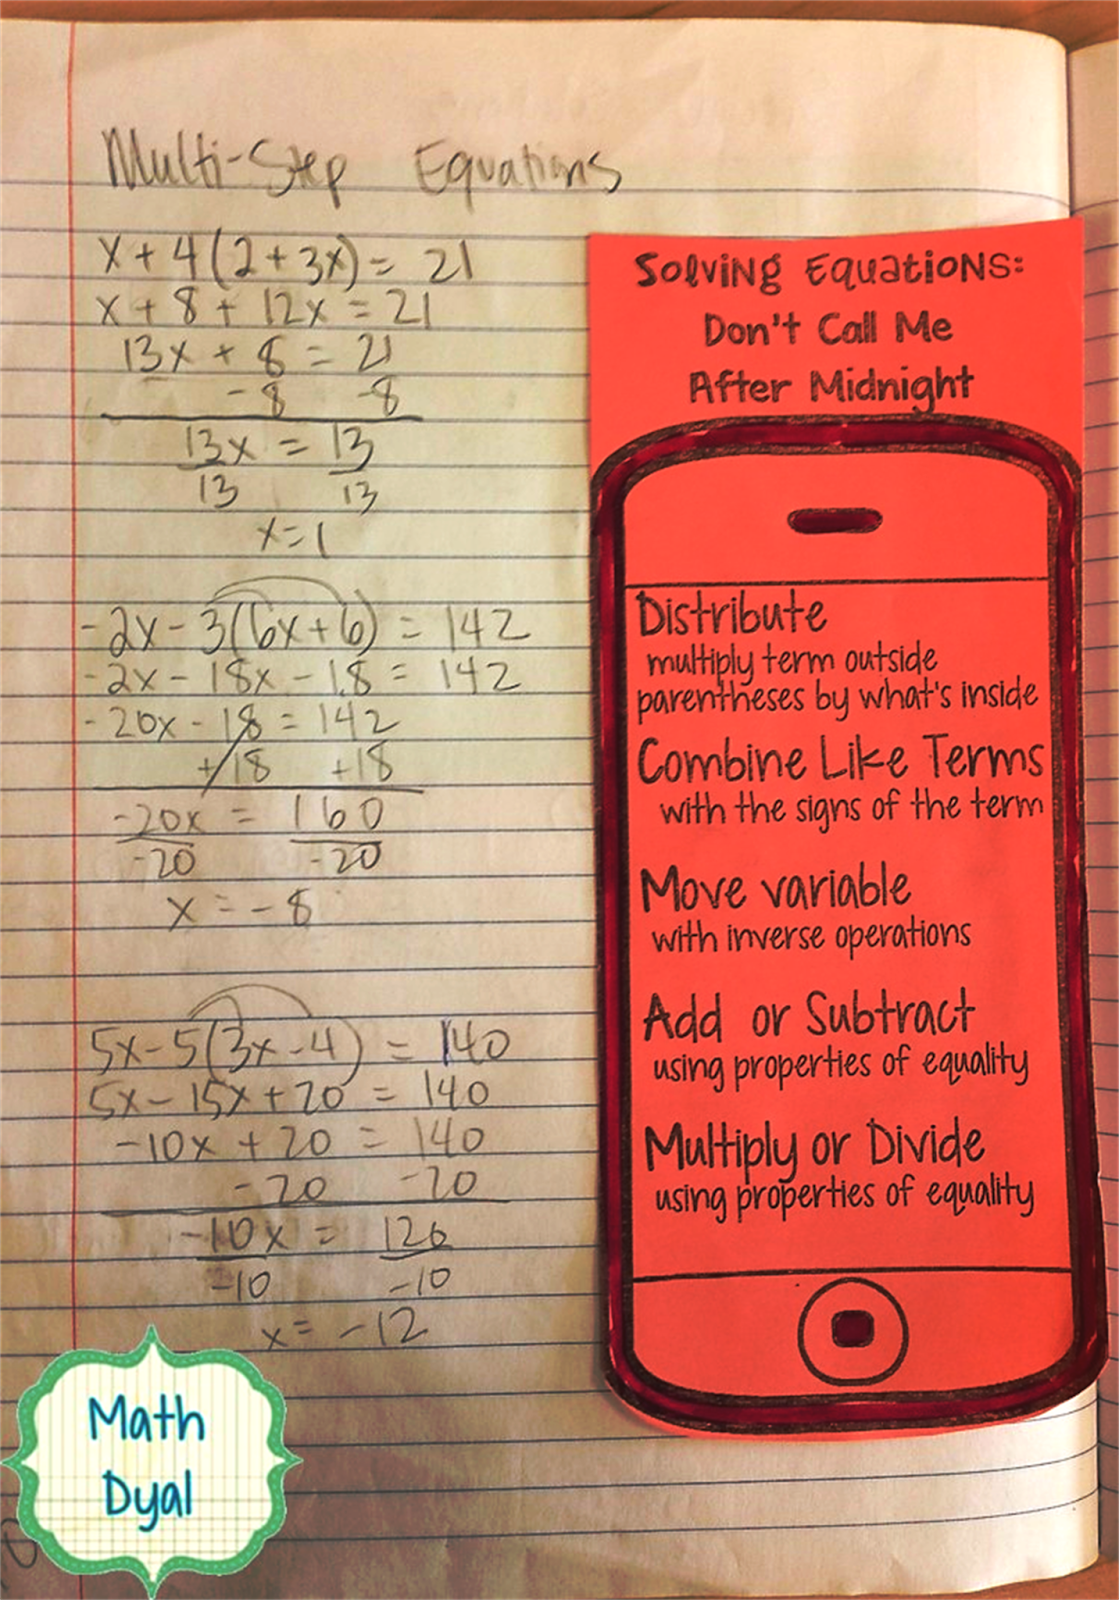 Multi-Step Equations
x + 4(2 + 3x) = 21
x + 8 + 12x = 21
13x + 8 = 21
- 8 -8
13x = 13
13 13
x = 1
-2x - 3(6x + 6) = 142
-2x - 18x - 18 = 142
-20x - 18 = 142
+18 +18
-20x = 160
-20 -20
x = -8
5x - 5(3x - 4) = 140
5x - 15x + 20 = 140
-10x + 20 = 140
-20 -20
-10x = 120
-10 -10
x = -12
Solving Equations:
Don't Call Me
After Midnight
Distribute
multiply term outside
parentheses by what's inside
Combine Like Terms
with the signs of the term
Move variable
with inverse operations
Add or Subtract
using properties of equality
Multiply or Divide
using properties of equality
Math
Dyal